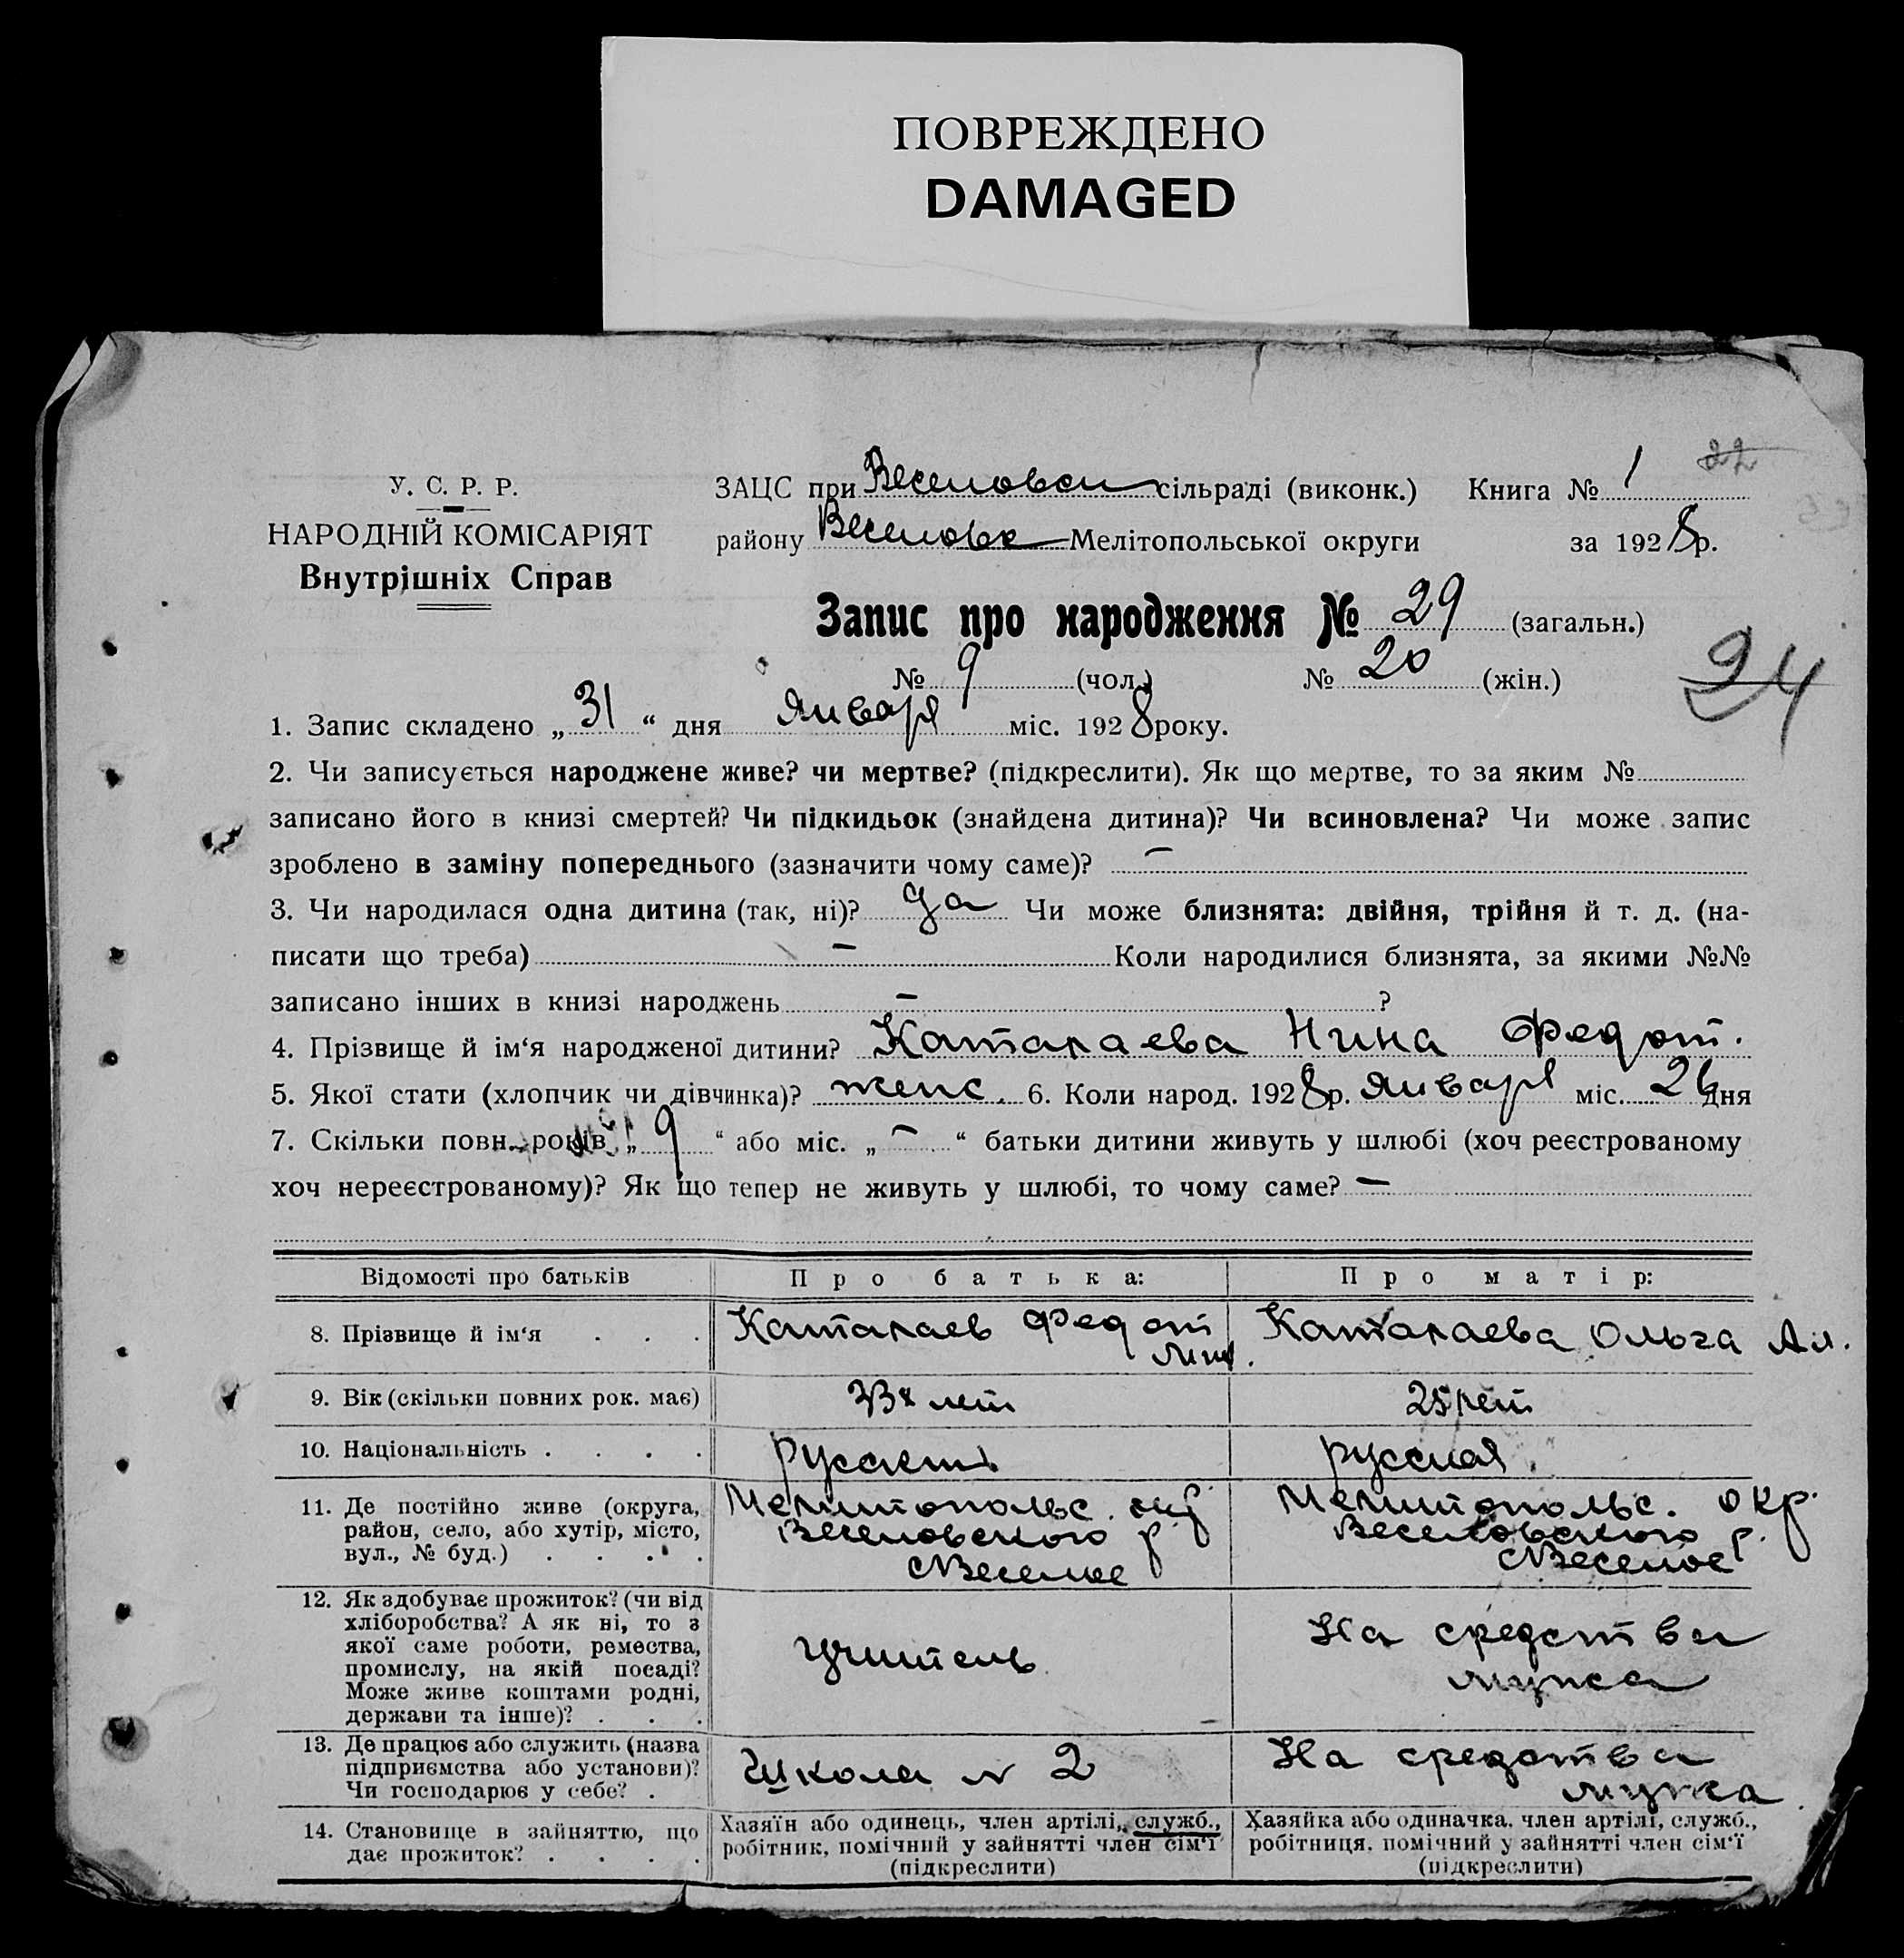 ПОВРЕЖДЕНО
DAMAGED
22
У. С. Р. Р.
НАРОДНІЙ КОМІСАРІЯТ
Внутрішніх Справ
ЗАЦС при Веселовск сільраді (виконк.) Книга № 1
району Веселовск Мелітопольської округи за 1928 р.
Запис про народження № 29 (загальн.)
№ 9 (чол.) № 20 (жін.)
24
1. Запис складено „ 31 “ дня Января міс. 1928 року.
2. Чи записується народжене живе? чи мертве? (підкреслити). Як що мертве, то за яким №
записано його в книзі смертей? Чи підкидьок (знайдена дитина)? Чи всиновлена? Чи може запис
зроблено в заміну попереднього (зазначити чому саме)? —
3. Чи народилася одна дитина (так, ні)? да Чи може близнята: двійня, трійня й т. д. (на-
писати що треба) — Коли народилися близнята, за якими №№
записано інших в книзі народжень — ?
4. Прізвище й ім‘я народженої дитини? Катараева Нина Федот.
5. Якої стати (хлопчик чи дівчинка)? женс. 6. Коли народ. 1928 р. Января міс. 26 дня
7. Скільки повн. років „ 9 “ або міс. „ — “ батьки дитини живуть у шлюбі (хоч реєстрованому
хоч нереєстрованому)? Як що тепер не живуть у шлюбі, то чому саме? —
Відомості про батьків Про батька: Про матір:
8. Прізвище й ім‘я . . . Катараев Федот Катараева Ольга Ал.
9. Вік (скільки повних рок. має) лет 25 лет
10. Національність . . . . русский русская
11. Де постійно живе (округа, Мелитопольс. окр Мелитопольс. окр.
район, село, або хутір, місто, Веселовского р. Веселовского р.
вул., № буд.) . . . . с Веселое с Веселое
12. Як здобуває прожиток? (чи від
хліборобства? А як ні, то з
якої саме роботи, ремества, учитель На средства
промислу, на якій посаді? мужа
Може живе коштами родні,
держави та інше)? . . .
13. Де працює або служить (назва
підприємства або установи)? Школа № 2 На средства
Чи господарює у себе? . мужа
14. Становище в зайняттю, що Хазяїн або одинець, член артілі, служб., Хазяйка або одиначка, член артілі, служб.,
дає прожиток? . . . . робітник, помічний у зайнятті член сім‘ї робітниця, помічний у зайнятті член сім‘ї
(підкреслити) (підкреслити)